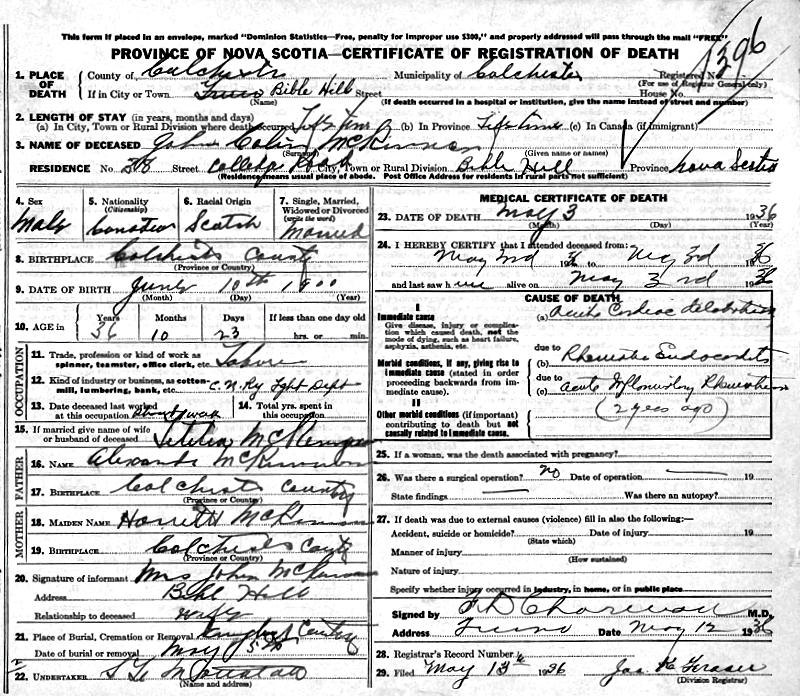 This form if placed in an envelope, marked "Dominion Statistics—Free, penalty for improper use $300," and properly addressed will pass through the mail "FREE"
PROVINCE OF NOVA SCOTIA—CERTIFICATE OF REGISTRATION OF DEATH
1396
1. PLACE OF DEATH County of Colchester Municipality of Colchester Registered No.
(For use of Registrar General only)
If in City or Town Truro Bible Hill Street House No.
(Name) (If death occurred in a hospital or institution, give the name instead of street and number)
2. LENGTH OF STAY (in years, months and days)
(a) In City, Town or Rural Division where death occurred Life Time (b) In Province Lifetime (c) In Canada (if immigrant)
3. NAME OF DECEASED John Colin McKinnon
(Surname) (Given name or names)
RESIDENCE No. Street College Road City, Town or Rural Division Bible Hill Province Nova Scotia
(Residence means usual place of abode. Post Office Address for residents in rural parts not sufficient)
4. Sex Male
5. Nationality (Citizenship) Canadian
6. Racial Origin Scotch
7. Single, Married, Widowed or Divorced (write the word) Married
8. BIRTHPLACE Colchester County
(Province or Country)
9. DATE OF BIRTH June 10th 1900
(Month) (Day) (Year)
10. AGE in Years 36 Months 10 Days 23 If less than one day old hrs. or min.
OCCUPATION
11. Trade, profession or kind of work as spinner, teamster, office clerk, etc. Labour
12. Kind of industry or business, as cotton-mill, lumbering, bank, etc. C.N.Ry Fght Dept
13. Date deceased last worked at this occupation
14. Total yrs. spent in this occupation
15. If married give name of wife or husband of deceased Letitia
FATHER
16. NAME Alexander McKinnon
17. BIRTHPLACE Colchester County
(Province or Country)
MOTHER
18. MAIDEN NAME Harriett McKinnon
19. BIRTHPLACE Colchester County
(Province or Country)
20. Signature of informant Mrs John McKinnon
Address Bible Hill
Relationship to deceased wife
21. Place of Burial, Cremation or Removal Cemetery
Date of burial or removal May 5th
22. UNDERTAKER
(Name and address)
MEDICAL CERTIFICATE OF DEATH
23. DATE OF DEATH May 3 1936
(Month) (Day) (Year)
24. I HEREBY CERTIFY that I attended deceased from:
May 2nd 1936 to May 3rd 1936
and last saw h im alive on May 3rd 1936
CAUSE OF DEATH
I
Immediate cause
Give disease, injury or complication which caused death, not the mode of dying, such as heart failure, asphyxia, asthenia, etc.
(a) Acute Cardiac dilatation
due to
Morbid conditions, if any, giving rise to immediate cause (stated in order proceeding backwards from immediate cause).
(b) Rheumatic Endocarditis
due to
(c) acute Inflammatory Rheumatism
II
Other morbid conditions (if important) contributing to death but not causally related to immediate cause.
(2 years ago)
25. If a woman, was the death associated with pregnancy?
26. Was there a surgical operation? no Date of operation 19
State findings Was there an autopsy?
27. If death was due to external causes (violence) fill in also the following:—
Accident, suicide or homicide? Date of injury 19
(State which)
Manner of injury
(How sustained)
Nature of injury
Specify whether injury occurred in industry, in home, or in public place
Signed by M.D.
Address Truro Date May 12 1936
28. Registrar's Record Number
29. Filed May 13th 1936 Jas. Fraser
(Division Registrar)